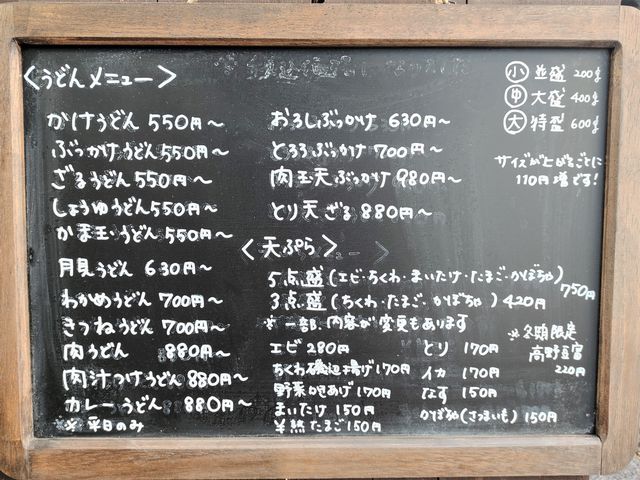 <うどんメニュー>
かけうどん 550円〜
ぶっかけうどん 550円〜
ざるうどん 550円〜
しょうゆうどん 550円〜
かま玉うどん 550円〜
月見うどん 630円〜
わかめうどん 700円〜
きつねうどん 700円〜
肉うどん 880円〜
肉汁つけうどん 880円〜
カレーうどん 880円〜
※平日のみ
おろしぶっかけ 630円〜
とろろぶっかけ 700円〜
肉玉天ぶっかけ 980円〜
とり天ざる 880円〜
小 並盛 200g
中 大盛 400g
大 特盛 600g
サイズが上がるごとに
110円増です!
<天ぷら>
5点盛(エビ・ちくわ・まいたけ・たまご・かぼちゃ) 750円
3点盛(ちくわ・たまご・かぼちゃ) 420円
※一部、内容が変更もあります
エビ 280円
ちくわ磯辺揚げ 170円
野菜かきあげ 170円
まいたけ 150円
半熟たまご 150円
とり 170円
イカ 170円
なす 150円
かぼちゃ(さつまいも) 150円
※冬期限定
高野豆富
220円